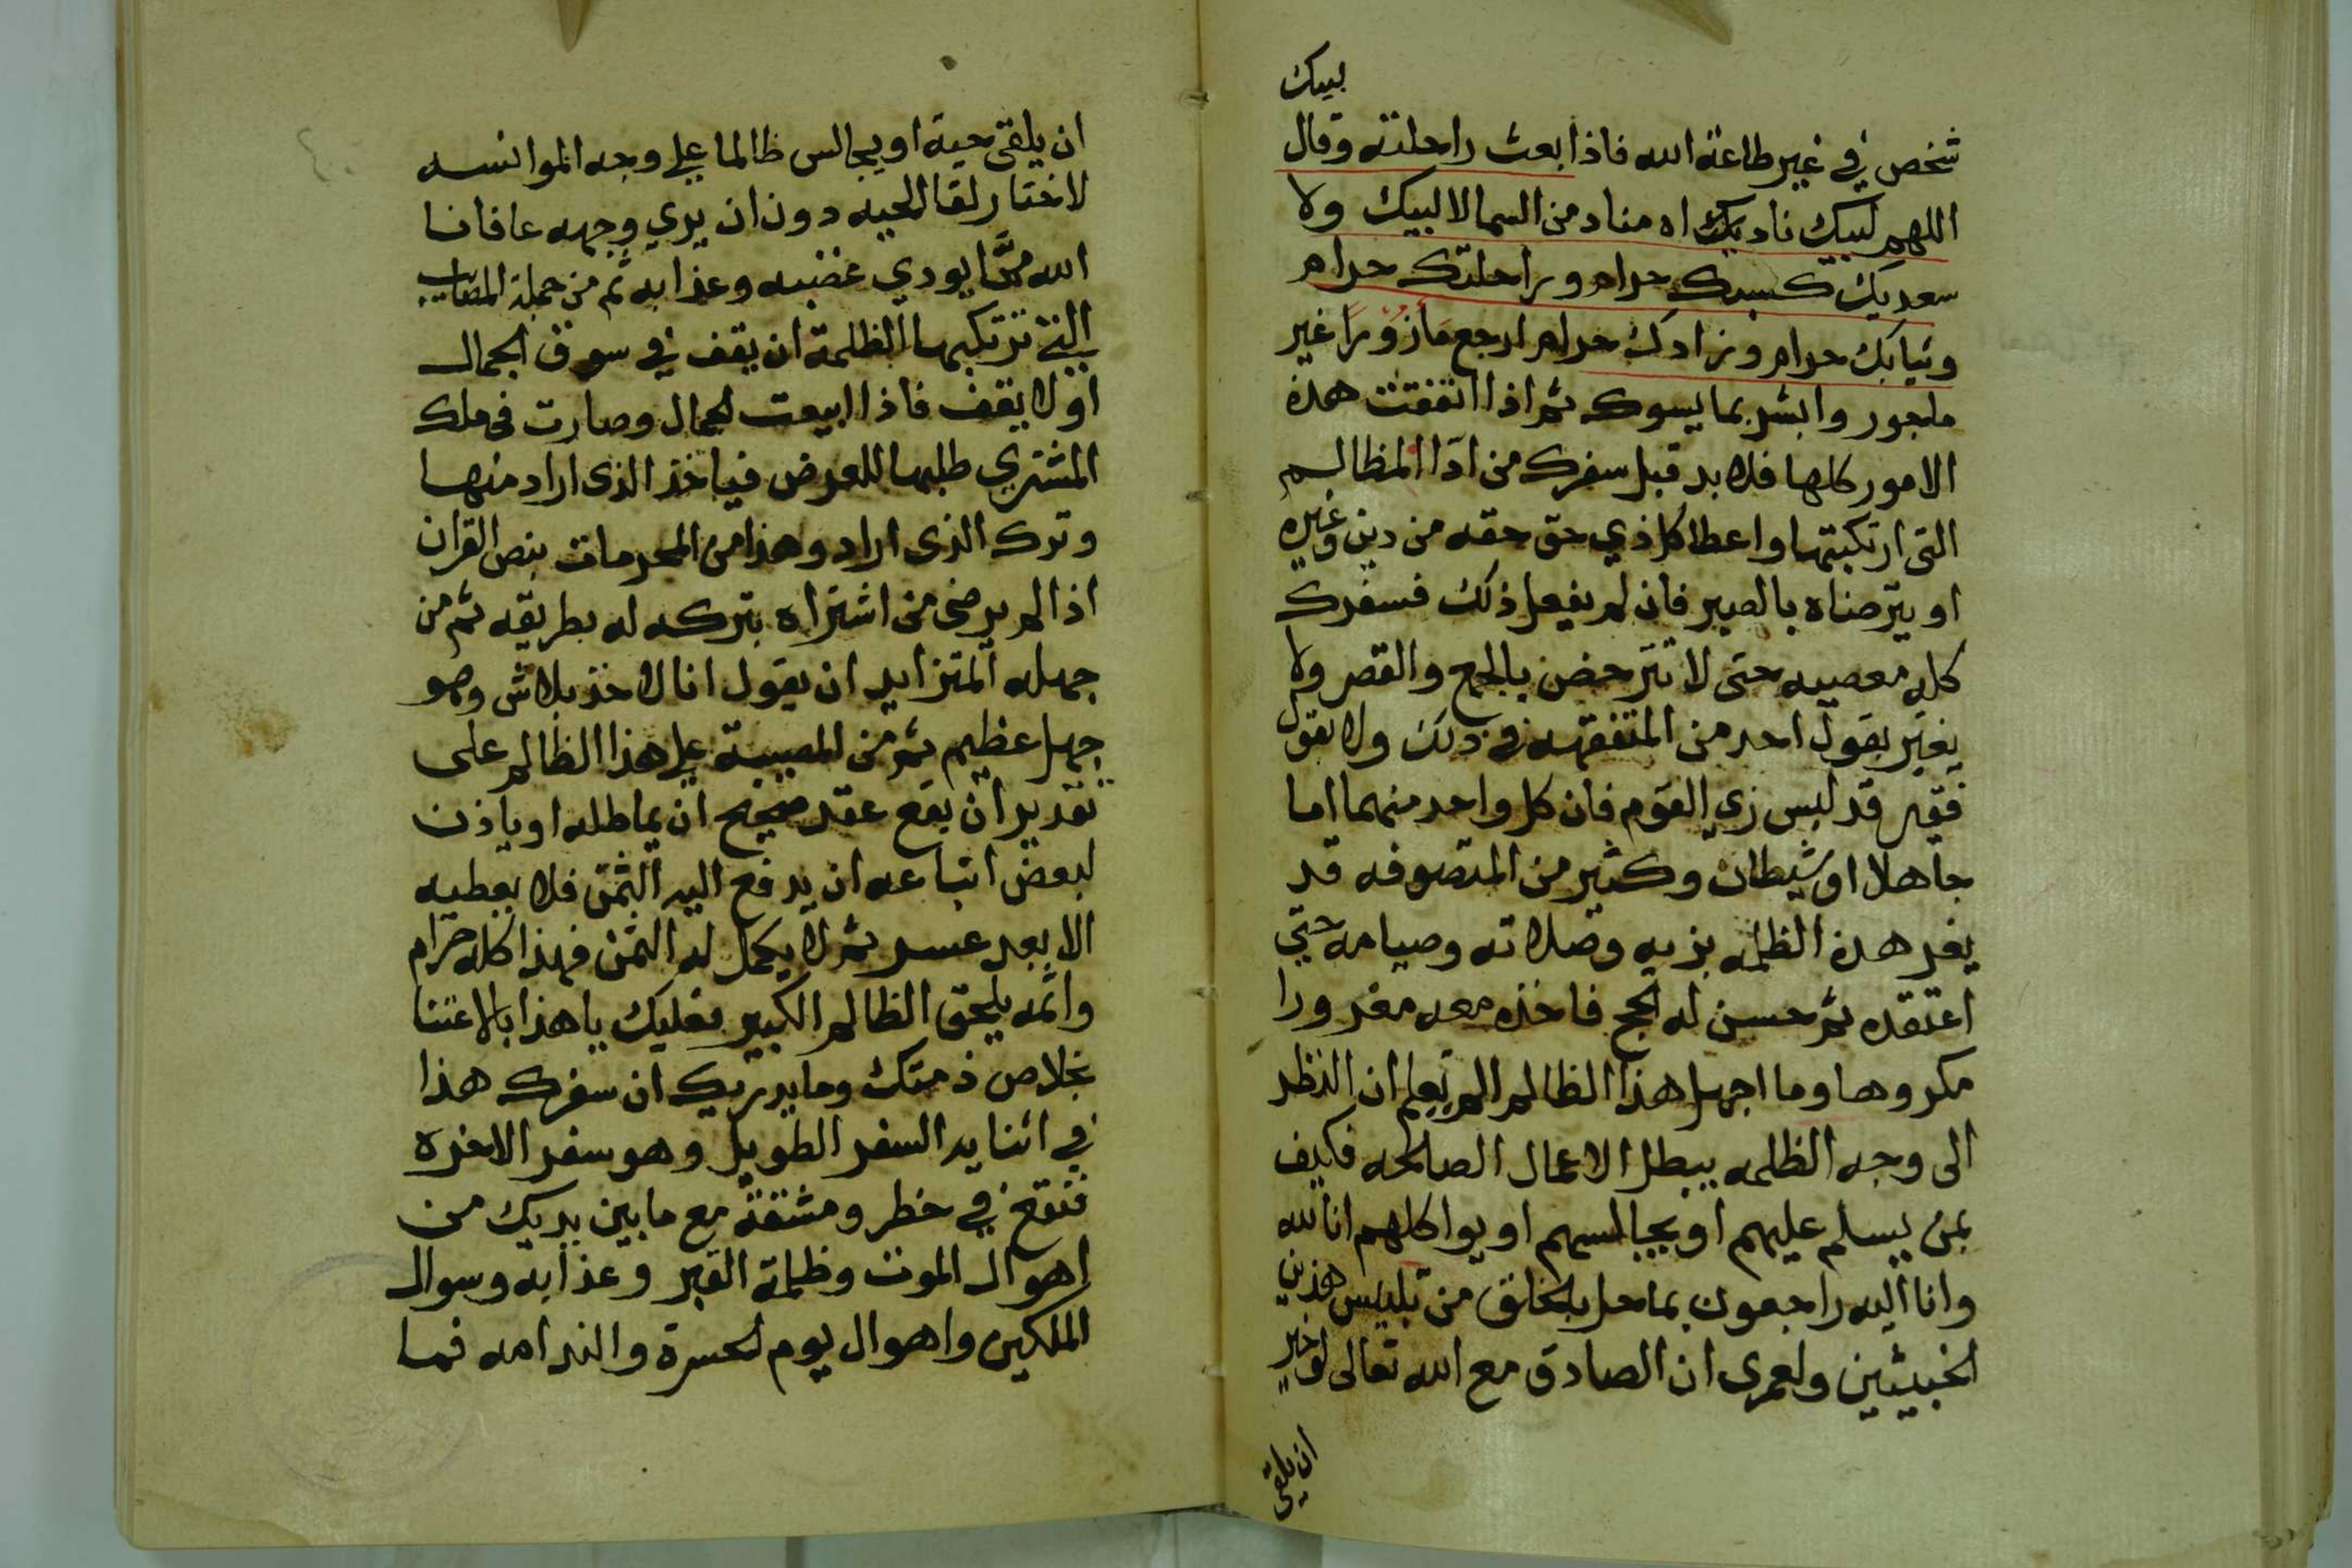 لبيك
شخص في غير طاعة الله فاذا ابعث راحلته وقال
اللهم لبيك ناداه مناد من السما لا لبيك ولا
سعديك كسبك حرام وراحلتك حرام
وثيابك حرام وزادك حرام ارجع مأزورا غير
ماجور وابشر بما يسوك ثم اذا اتفقت هذه
الامور كلها فلا بد قبل سفرك من ادا المظالم
التى ارتكبتها واعطا كل ذي حق حقه من دين وغيره
او يترضاه بالصبر فان لم يفعل ذلك فسفرك
كله معصيه حتى لا تترخص بالجمع والقصر ولا
يغتر بقول احد من المتفقهه في ذلك ولا بقول
فقير قد لبس زي القوم فان كل واحد منهما اما
جاهلا او شيطان وكثير من المتصوفه قد
يغر هذه الظلمه بزيه وصلاته وصيامه حتي
اعتقده ثم حسن له الحج فاخذه معه مغرورا
مكروها وما اجهل هذا الظالم الم تعلم ان النظر
الى وجه الظلمه يبطل الاعمال الصالحه فكيف
بمن يسلم عليهم او يجالسهم او يواكلهم انا لله
وانا اليه راجعون بما حل بالخلق من تلبيس هذين
الخبيثين ولعمرى ان الصادق مع الله تعالى لو خير
ان يلقى
ان يلقى حية او يجالس ظالما علي وجه الموانسه
لاختار لقا الحيه دون ان يري وجهه عافانا
الله مما يودي غضبه وعذابه ثم من جملة المصايب
التي ترتكبها الظلمة ان يقف في سوق الجمال
او لا يقف فاذا ابيعت الجمال وصارت فى ملك
المشتري طلبها للعرض فياخذ الذى اراد منها
وترك الذى اراد وهذا من المحرمات بنص القران
اذا لم يرضى من اشتراه بتركه له بطريقه ثم من
جهله المتزايد ان يقول انا لا اخذ بلاش وهو
جهل عظيم ثم من المصيبة علي هذا الظالم على
تقدير ان يقع عقد صحيح ان يماطله او ياذن
لبعض اتباعه ان يدفع اليه الثمن فلا يعطيه
الا بعد عسر ثم لا يكمل له الثمن فهذا كله حرام
واثمه يلحق الظالم الكبير فعليك يا هذا بالاعتنا
بخلاص ذمتك وما يدريك ان سفرك هذا
في اثنايه السفر الطويل وهو سفر الاخرة
فتقع في خطر ومشقة مع ما بين يديك من
اهوال الموت وظلمة القبر وعذابه وسوال
الملكين واهوال يوم الحسرة والندامه فما